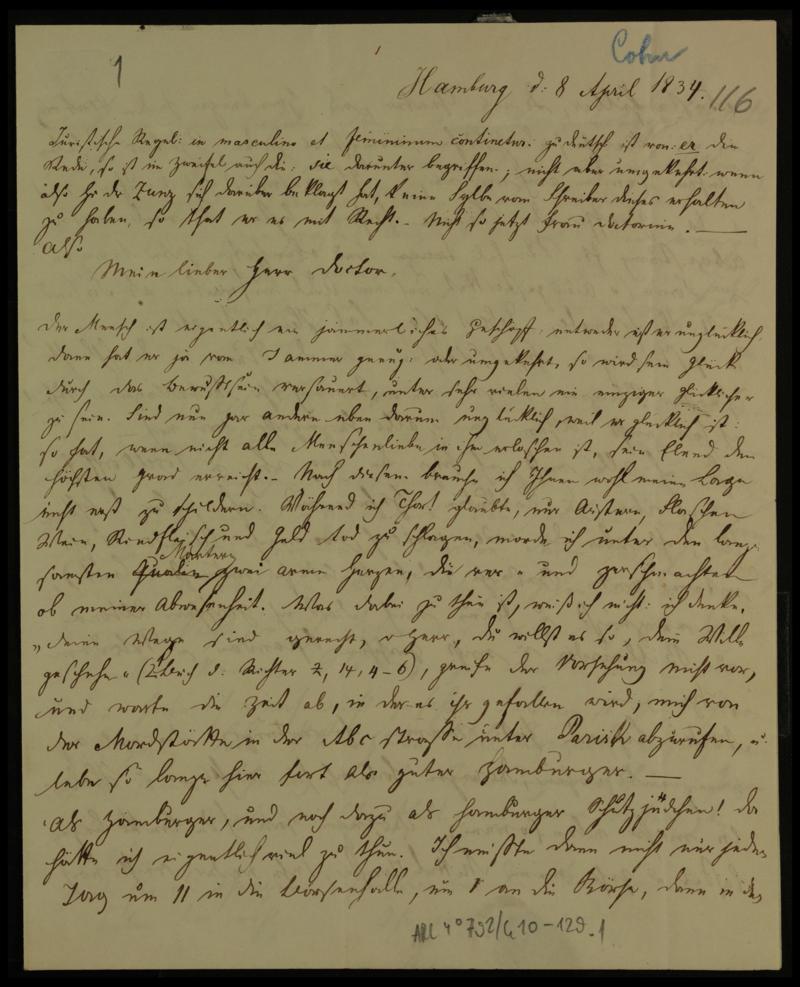 1
Cohn
Hamburg d: 8 April 1834.
116
Juristische Regel: in masculino et femininum continetur: zu deutsch ist von: er die
Rede, so ist im Zweifel auch die: sie darunter begriffen; nicht aber umgekehrt. wenn
also Hr Dr Zunz sich darüber beklagt hat, keine Sylbe vom Schreiber dieses erhalten
zu haben, so that er es mit Recht. – Nicht so jetzt Frau Doctorinn. —
Also
Mein lieber Herr Doctor.
Der Mensch ist eigentlich ein jämmerliches Geschöpf: entweder ist er unglücklich,
dann hat er ja vom Jammer genug: oder umgekehrt, so wird sein Glück
durch das Bewußtsein versauert, unter sehr vielen ein einziger Glücklicher
zu sein. Sind nun gar andere eben darum unglücklich, weil er glücklich ist:
so hat, wenn nicht alle Menschenliebe in ihm erloschen ist, sein Elend den
höchsten Grad erreicht. – Nach diesem brauche ich Ihnen wohl meine Lage
nicht erst zu schildern. Während ich Thor! glaubte, nur Austern, Flaschen
Wein, Rindfleisch und Geld tod zu schlagen, morde ich unter den lang-
samsten Martern zwei arme Herzen, die ver- und zerschmachten
ob meiner Abwesenheit. Was dabei zu thun ist, weiß ich nicht: ich denke,
„deine Wege sind gerecht, o Herr, du willst es so, dein Wille
geschehe“ (Buch d: Richter 2, 14, 4–6), greife der Vorsehung nicht vor,
und warte die Zeit ab, in der es ihr gefallen wird, mich von
der Mordstätte in der Abc strasse unter Parish abzurufen, u.
lebe so lange hier fort als guter Hamburger. —
Als Hamburger, und noch dazu als hamburger Schutzjüdchen! da
hätte ich eigentlich viel zu thun. Ich müsste dann nicht nur jeden
Tag um 11 in die Börsenhalle, um 1 an die Börse, dann in den
ARC 4° 792/G10-129.1